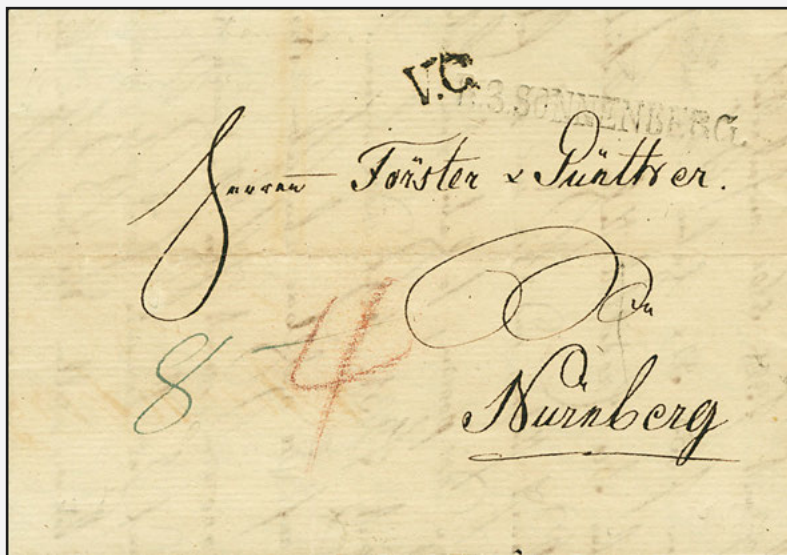 V.C
3.SONNENBERG.
Herren Förster & Günther.
In
8 4
Nürnberg